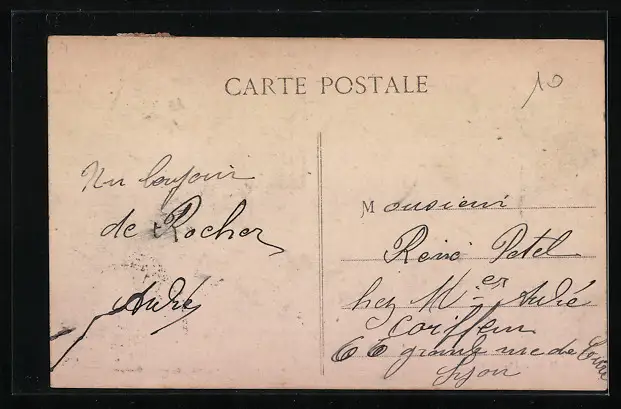 CARTE POSTALE
10
Un bonjour
de Rocher
André
Monsieur
René Petel
chez Mr André
Coiffeur
66 grande rue de
Lyon